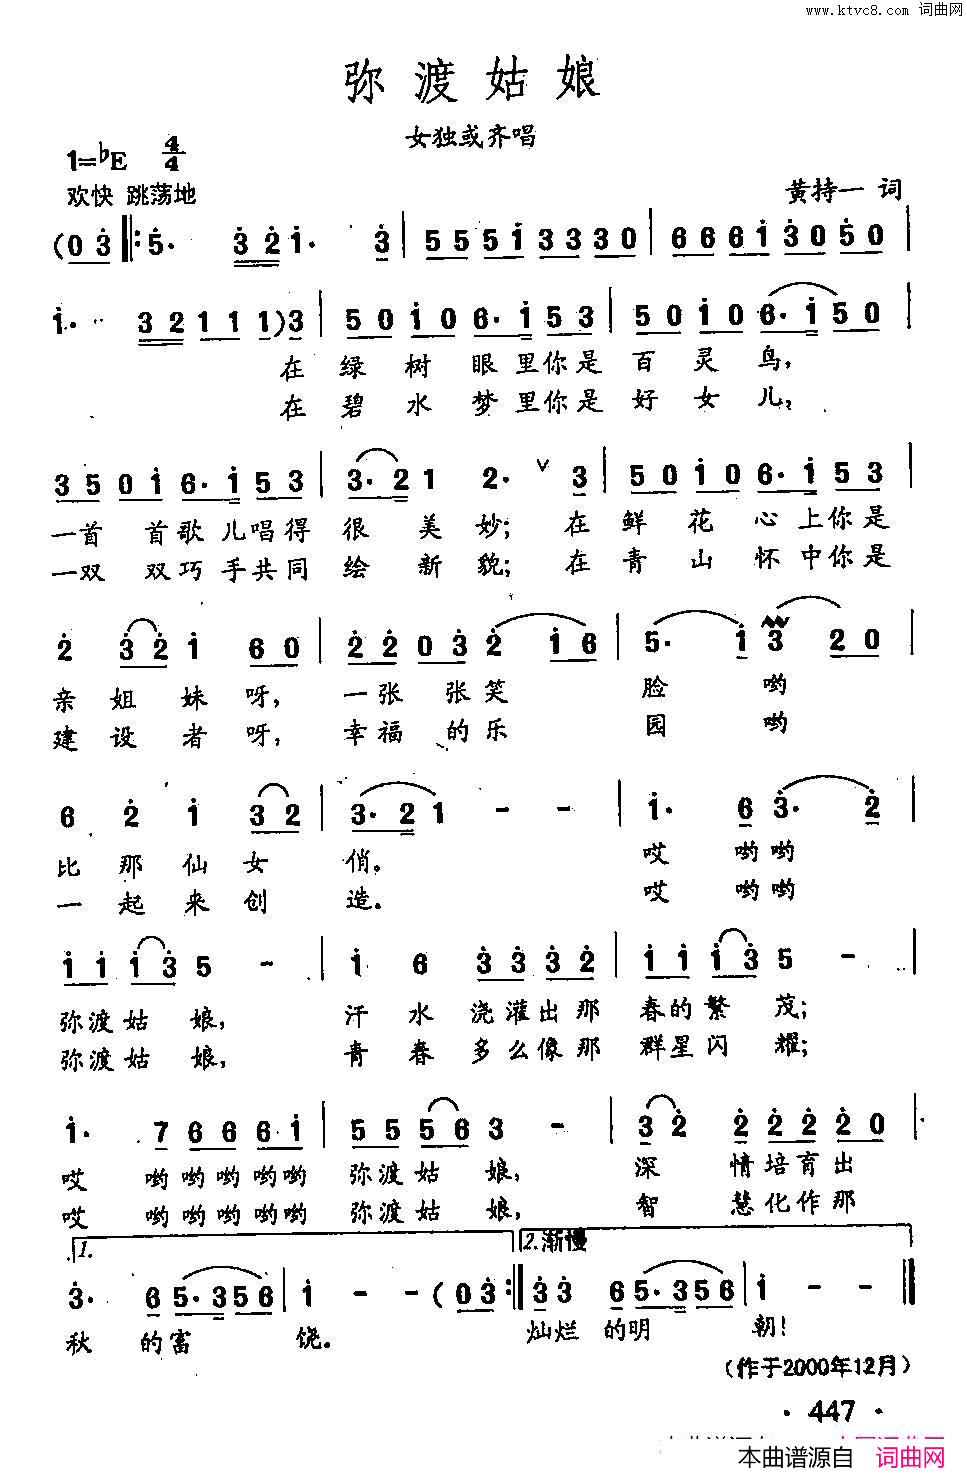 www.ktvc8.com 词曲网
弥渡姑娘
女独或齐唱
1=♭E 4/4
欢快 跳荡地
黄持一 词
(0 3 ‖: 5· 3 2 1· 3 | 5 5 5 1 3 3 3 0 | 6 6 6 1 3 0 5 0 |
1· 3 2 1 1 1 1) 3 | 5 0 1 0 6· 1 5 3 | 5 0 1 0 6· 1 5 0 |
在 绿 树 眼 里你是 百 灵 鸟,
在 碧 水 梦 里你是 好 女 儿,
3 5 0 1 6· 1 5 3 | 3· 2 1 2· ∨ 3 | 5 0 1 0 6· 1 5 3 |
一首 首歌 儿唱得 很 美 妙; 在 鲜 花 心 上你是
一双 双巧 手共同 绘 新 貌; 在 青 山 怀 中你是
2 3 2 1 6 0 | 2 2 0 3 2 1 6 | 5· 1 3 2 0 |
亲 姐 妹 呀, 一张 张笑 脸 哟
建 设 者 呀, 幸福 的乐 园 哟
6 2 1 3 2 | 3· 2 1 - - | 1· 6 3· 2 |
比 那 仙 女 俏。 哎 哟哟
一 起 来 创 造。 哎 哟哟
1 1 1 3 5 - | 1 6 3 3 3 2 | 1 1 1 3 5 - |
弥渡姑 娘, 汗 水 浇灌出那 春的繁 茂;
弥渡姑 娘, 青 春 多么像那 群星闪 耀;
1· 7 6 6 6 1 | 5 5 5 6 3 - | 3 2 2 2 2 2 0 |
哎 哟哟哟哟哟 弥渡姑 娘, 深 情培育出
哎 哟哟哟哟哟 弥渡姑 娘, 智 慧化作那
1. 2.渐慢
3· 6 5· 3 5 6 | 1 - - (0 3 :‖ 3 3 6 5· 3 5 6 | 1 - - ‖
秋 的富 饶。 灿烂 的明 朝!
(作于2000年12月)
· 447 ·
本曲谱源自 词曲网